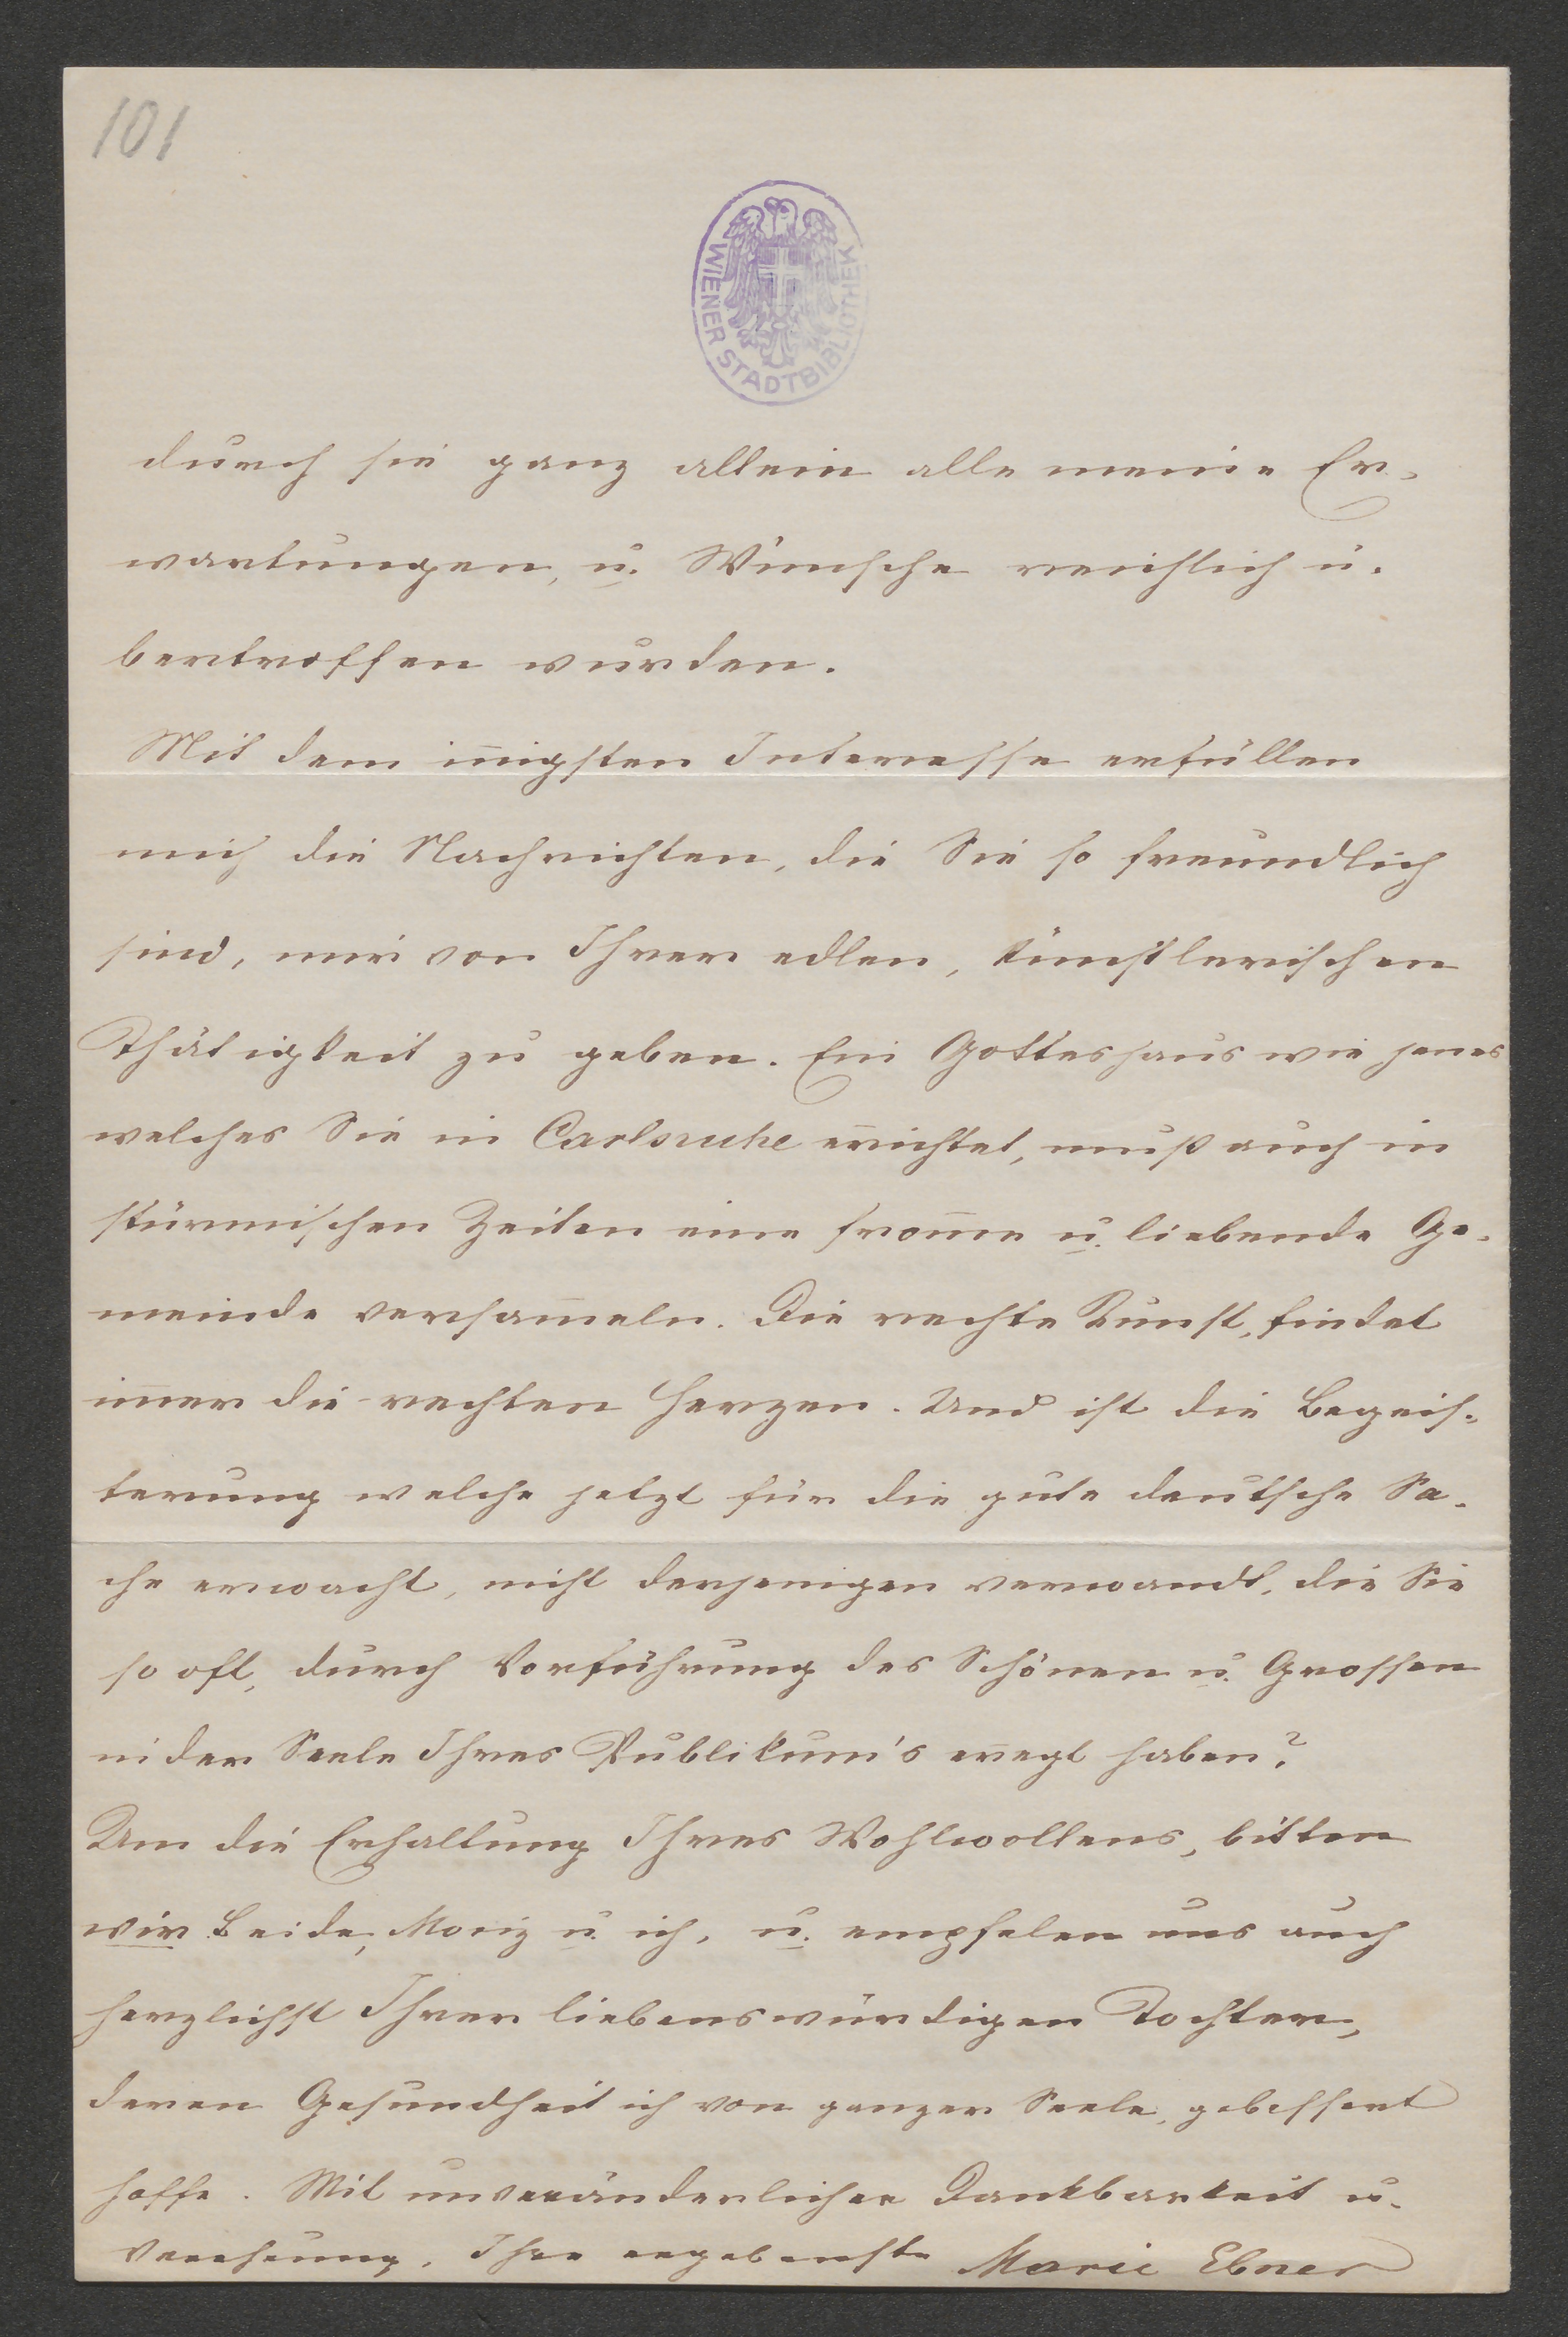 101
WIENER STADTBIBLIOTHEK
durch sie ganz allein alle meine Er-
wartungen, u. Wünsche reichlich ü-
bertroffen wurden.
Mit dem iñigsten Interesse erfüllen
mich die Nachrichten, die Sie so freundlich
sind, mir von Ihrer edlen, künstlerischen
Thätigkeit zu geben. Ein Gotteshaus wie jenes
welches Sie in Carlsruhe errichtet, muß auch in
stürmischen Zeiten eine from̄e u. liebende Ge-
meinde versam̄eln. Die rechte Kunst, findet
im̄er die rechten Herzen. Und ist die Begeis-
terung welche jetzt für die gute deutsche Sa-
che erwacht, nicht derjenigen verwandt, die Sie
so oft, durch Vorführung des Schönen u. Grossen
in der Seele Ihres Publikum's erregt haben?
Um die Erhaltung Ihres Wohlwollens, bitten
wir Beide, Moriz u. ich, u. empfelen uns auch
herzlichst Ihrer liebenswürdigen Tochter,
deren Gesundheit ich von ganzer Seele, gebessert
hoffe. Mit unveränderlicher Dankbarkeit u.
Verehrung, Ihre ergebenste Marie Ebner